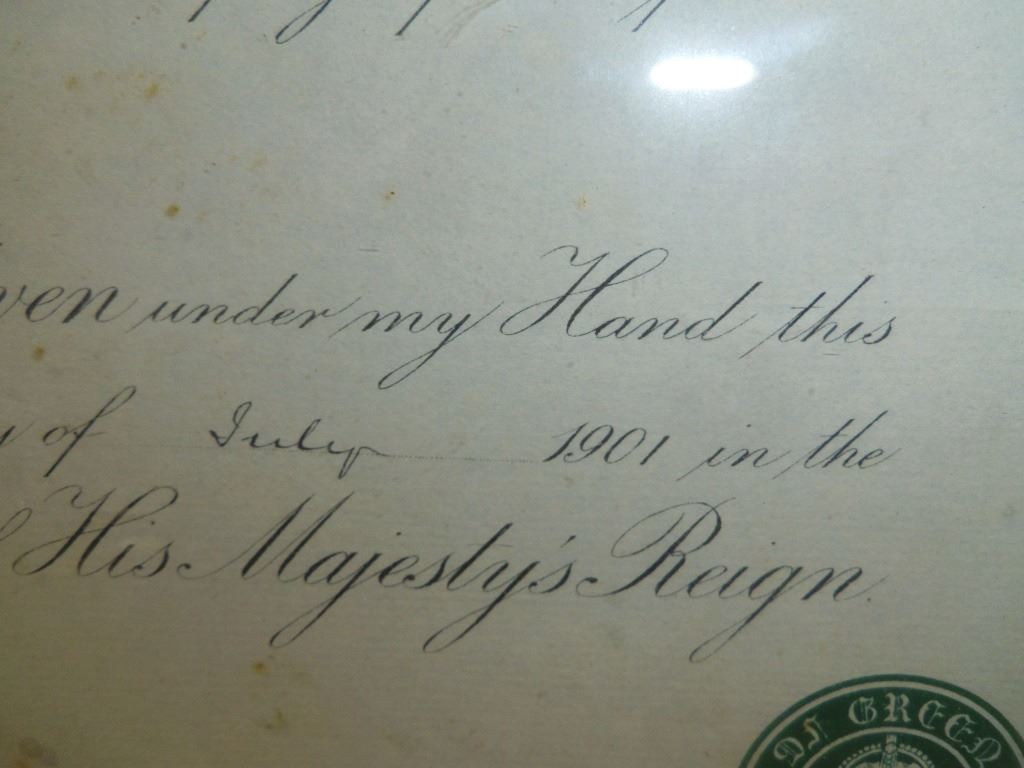 ven under my Hand this
of July 1901 in the
His Majesty's Reign.
GREEN